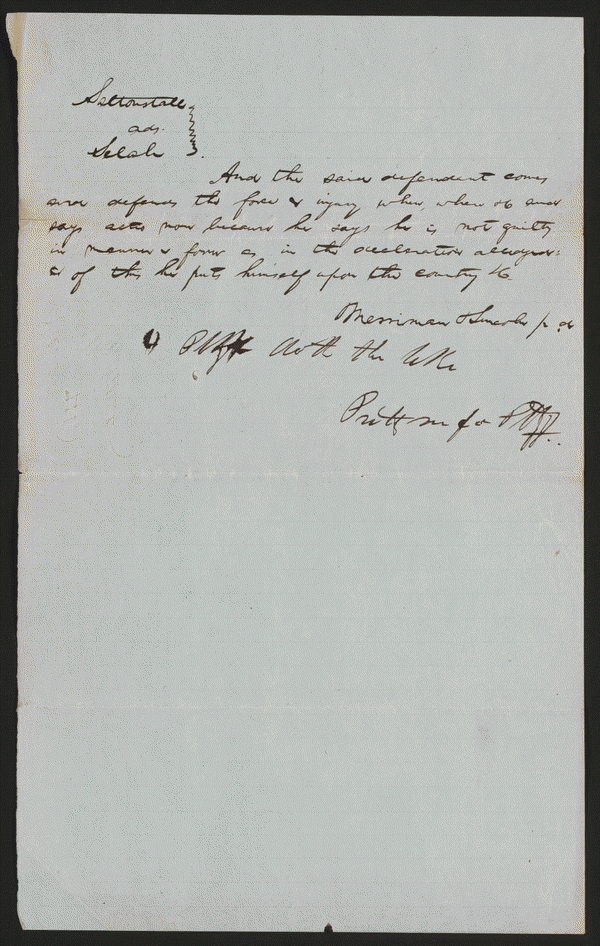 Saltonstall
ads.
Selah
And the said defendant comes
and defends the force & injury when, when &c and
says actio non because he says he is not guilty
in manner & form as in the declaration alleged
& of this he puts himself upon the country &c
Merriman & Lincoln p. d
& Plff doth the like
for Plff.